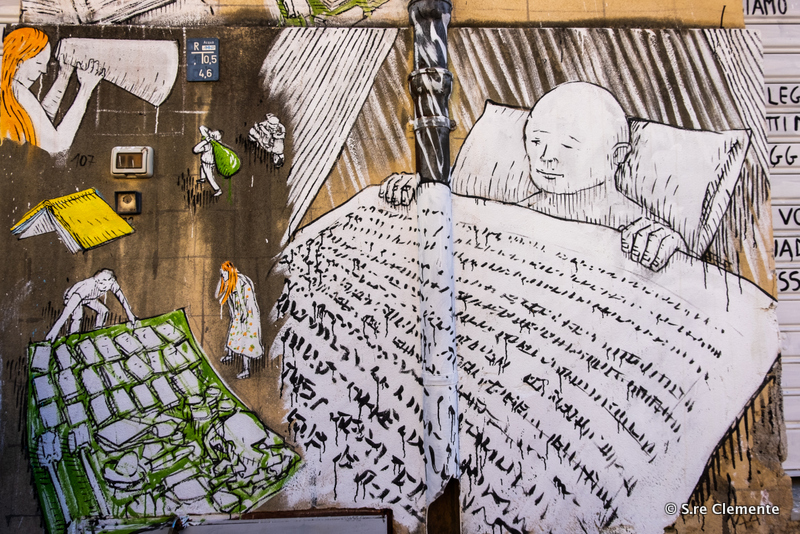 IAMO
R
10,5
4,6
LEG
TI M
GG
107
VO
IAD
SS
© S.re Clemente